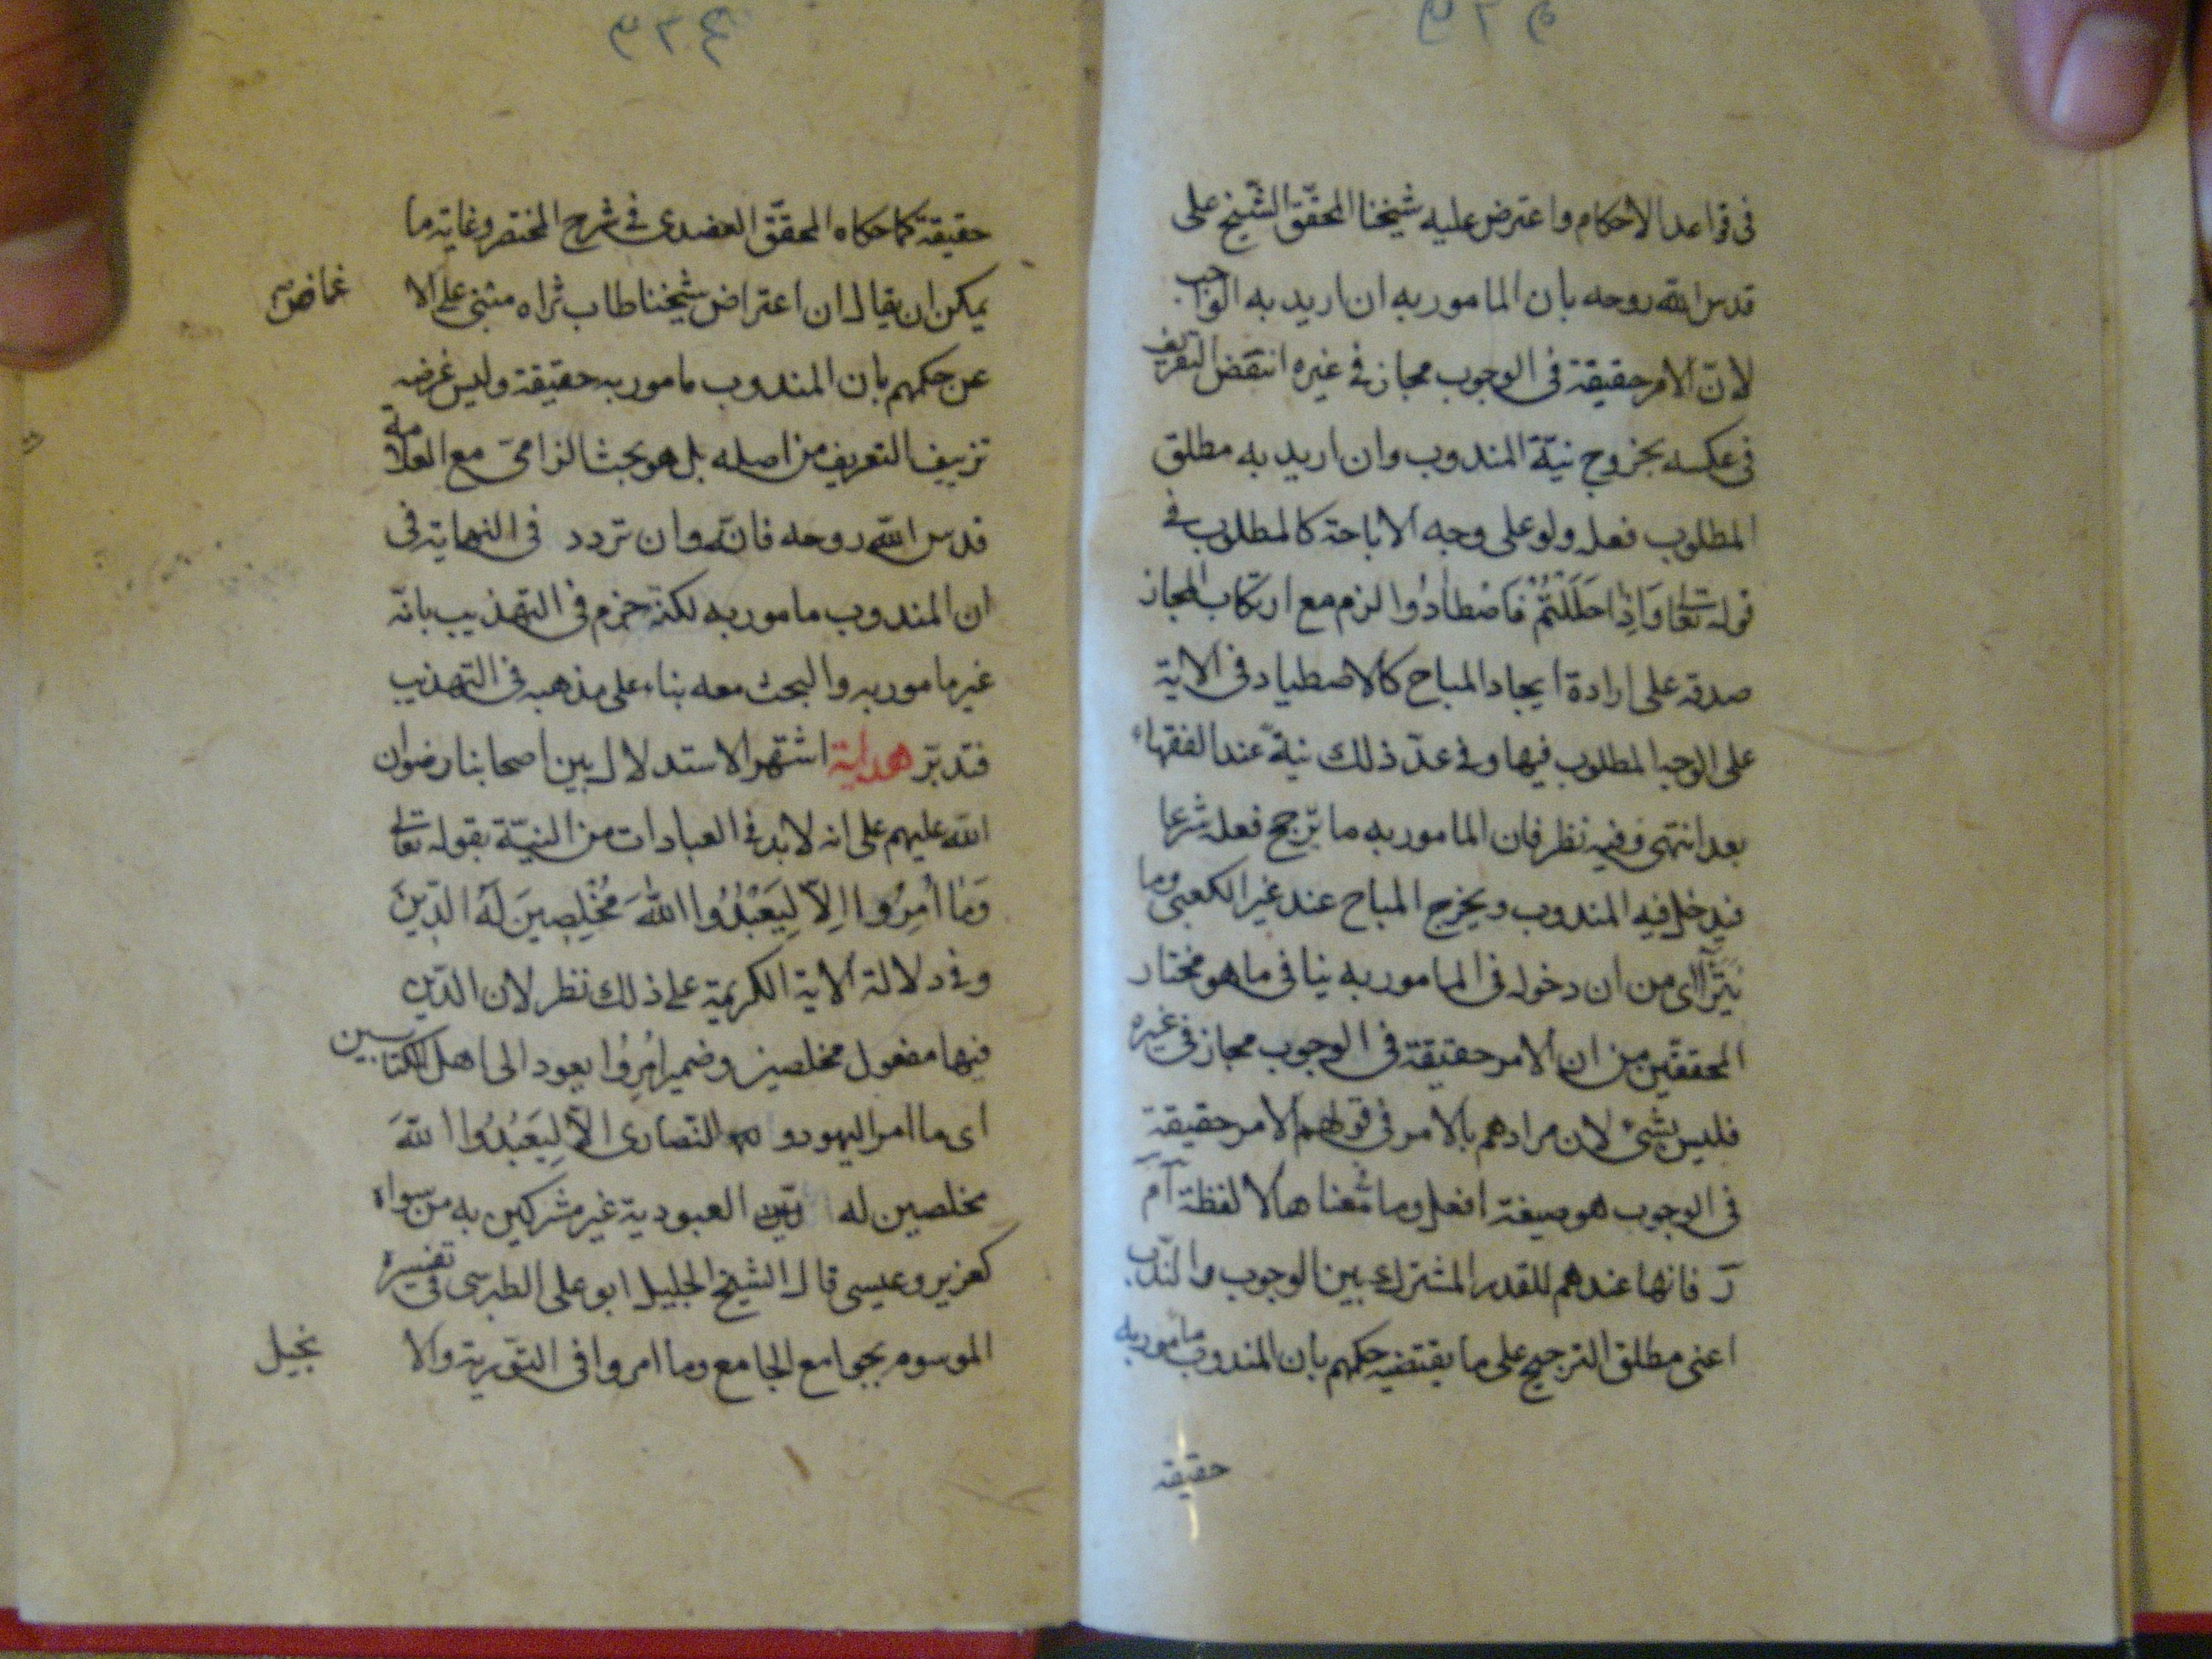 فى قواعد الأحكام واعترض عليه شيخنا المحقّق الشّيخ على
قدس الله روحه بان المامور به ان اريد به الواجب
لانّ الامر حقيقة فى الوجوب مجاز فى غيره انتقض التعريف
فى عكسه بخروج نيّة المندوب وان اريد به مطلق
المطلوب فعله ولو على وجه الاباحة كالمطلوب فى
قوله تعالى وَاِذا حَلَلْتُمْ فَاصْطادُوا لزم مع ارتكاب المجاز
صدقه على ارادة ايجاد المباح كالاصطياد فى الاية
على الوجه المطلوب فيها وفى عدّ ذلك نيةً عند الفقهاء
بعد انتهى وفيه نظر فان المامور به ما ترجح فعله شرعا
فيدخل فيه المندوب ويخرج المباح عند غير الكعبى وما
يترآاى من ان دخوله فى المامور به ينافى ما هو مختار
المحققين من ان الامر حقيقة فى الوجوب مجاز فى غيره
فليس بشىء لان مرادهم بالامر فى قولهم الامر حقيقة
فى الوجوب هو صيغة افعل وما بمعناها لا لفظة آ م
ر فانها عندهم للقدر المشترك بين الوجوب والندب
اعنى مطلق الترجيح على ما يقتضيه حكمهم بان المندوب مامور به
حقيقة
حقيقة كما حكاه المحقّق العضدى فى شرح المختصر وغاية ما
يمكن ان يقال ان اعتراض شيخنا طاب ثراه مبنى على الا
غماض
عن حكمهم بان المندوب مامور به حقيقة وليس غرضه
تزييف التعريف من اصله بل هو بحث الزامىّ مع العلامة
قدس الله روحه فانّه وان تردد فى النهاية فى
ان المندوب مامور به لكنّه جزم فى التهذيب بانّه
غير مامور به والبحث معه بناء على مذهبه فى التهذيب
فتدبّر هداية اشتهر الاستدلال بين اصحابنا رضوان
الله عليهم على انه لا بد فى العبادات من النيّة بقوله تعالى
وَمَا اُمِرُوا اِلاّ لِيَعْبُدُوا اللهَ مُخْلِصِينَ لَهُ الدّينَ
وفى دلالة الاية الكريمة على ذلك نظر لان الدّين
فيها مفعول مخلصين وضمير اُمِرُوا يعود الى اهل الكتابين
اى ما امر اليهود و النّصارى الاّ لِيَعْبُدُوا اللهَ
مخلصين له دين العبودية غير مشركين به من سواه
كعزير وعيسى قال الشيخ الجليل ابو على الطبرسى فى تفسيره
الموسوم بجوامع الجامع وما امروا فى التّورية والا
نجيل